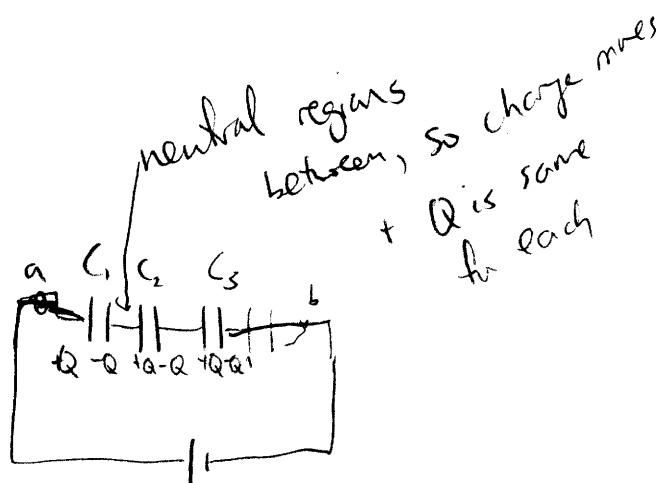 neutral regions
between, so charge moves
+ Q is same
for each
a C₁ C₂ C₃ b
+Q -Q +Q -Q +Q -Q